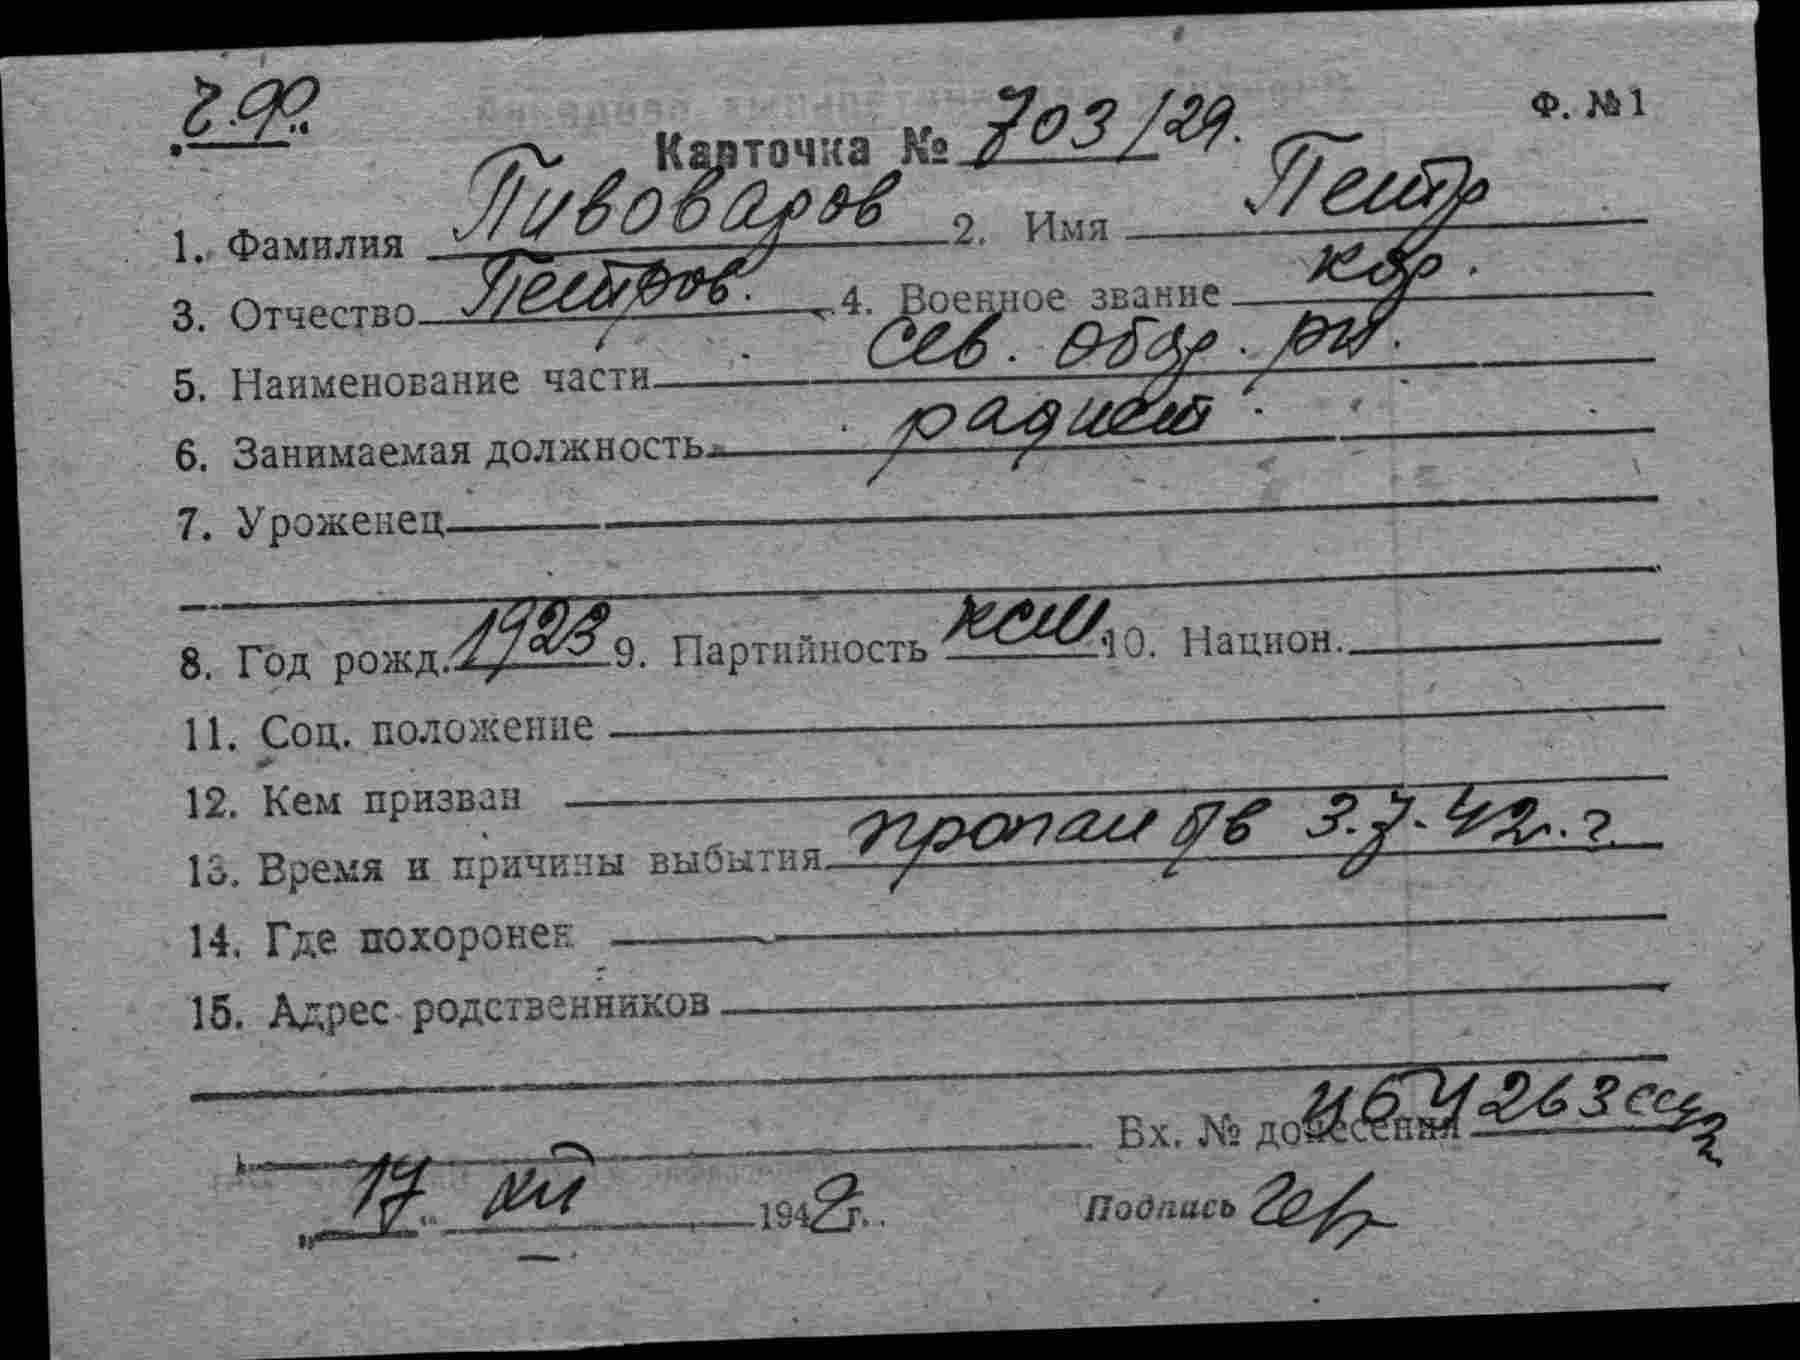 ч.ф.
Ф. №1
Карточка № 703/29.
1. Фамилия Пивоваров 2. Имя Петр
3. Отчество Петров. 4. Военное звание к-р.
5. Наименование части сев. обор. рн.
6. Занимаемая должность радист
7. Уроженец
8. Год рожд. 1923 9. Партийность ксм 10. Национ.
11. Соц. положение
12. Кем призван
13. Время и причины выбытия пропал б/в 3.7.42 г.
14. Где похоронен
15. Адрес родственников
Вх. № донесения 263сс
„17" XII 1942г. Подпись